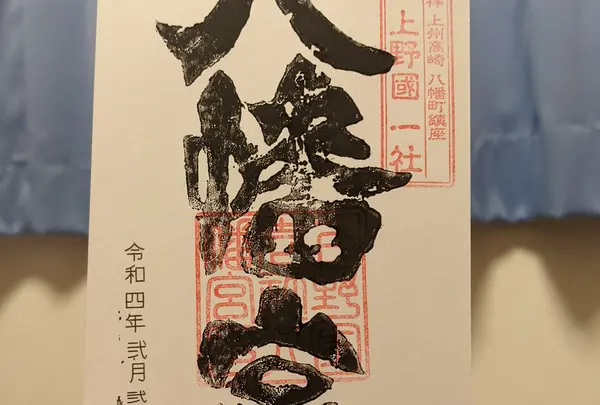 上州高崎 八幡町鎮座
上野國一社
八幡宮
令和四年 弐月 弐